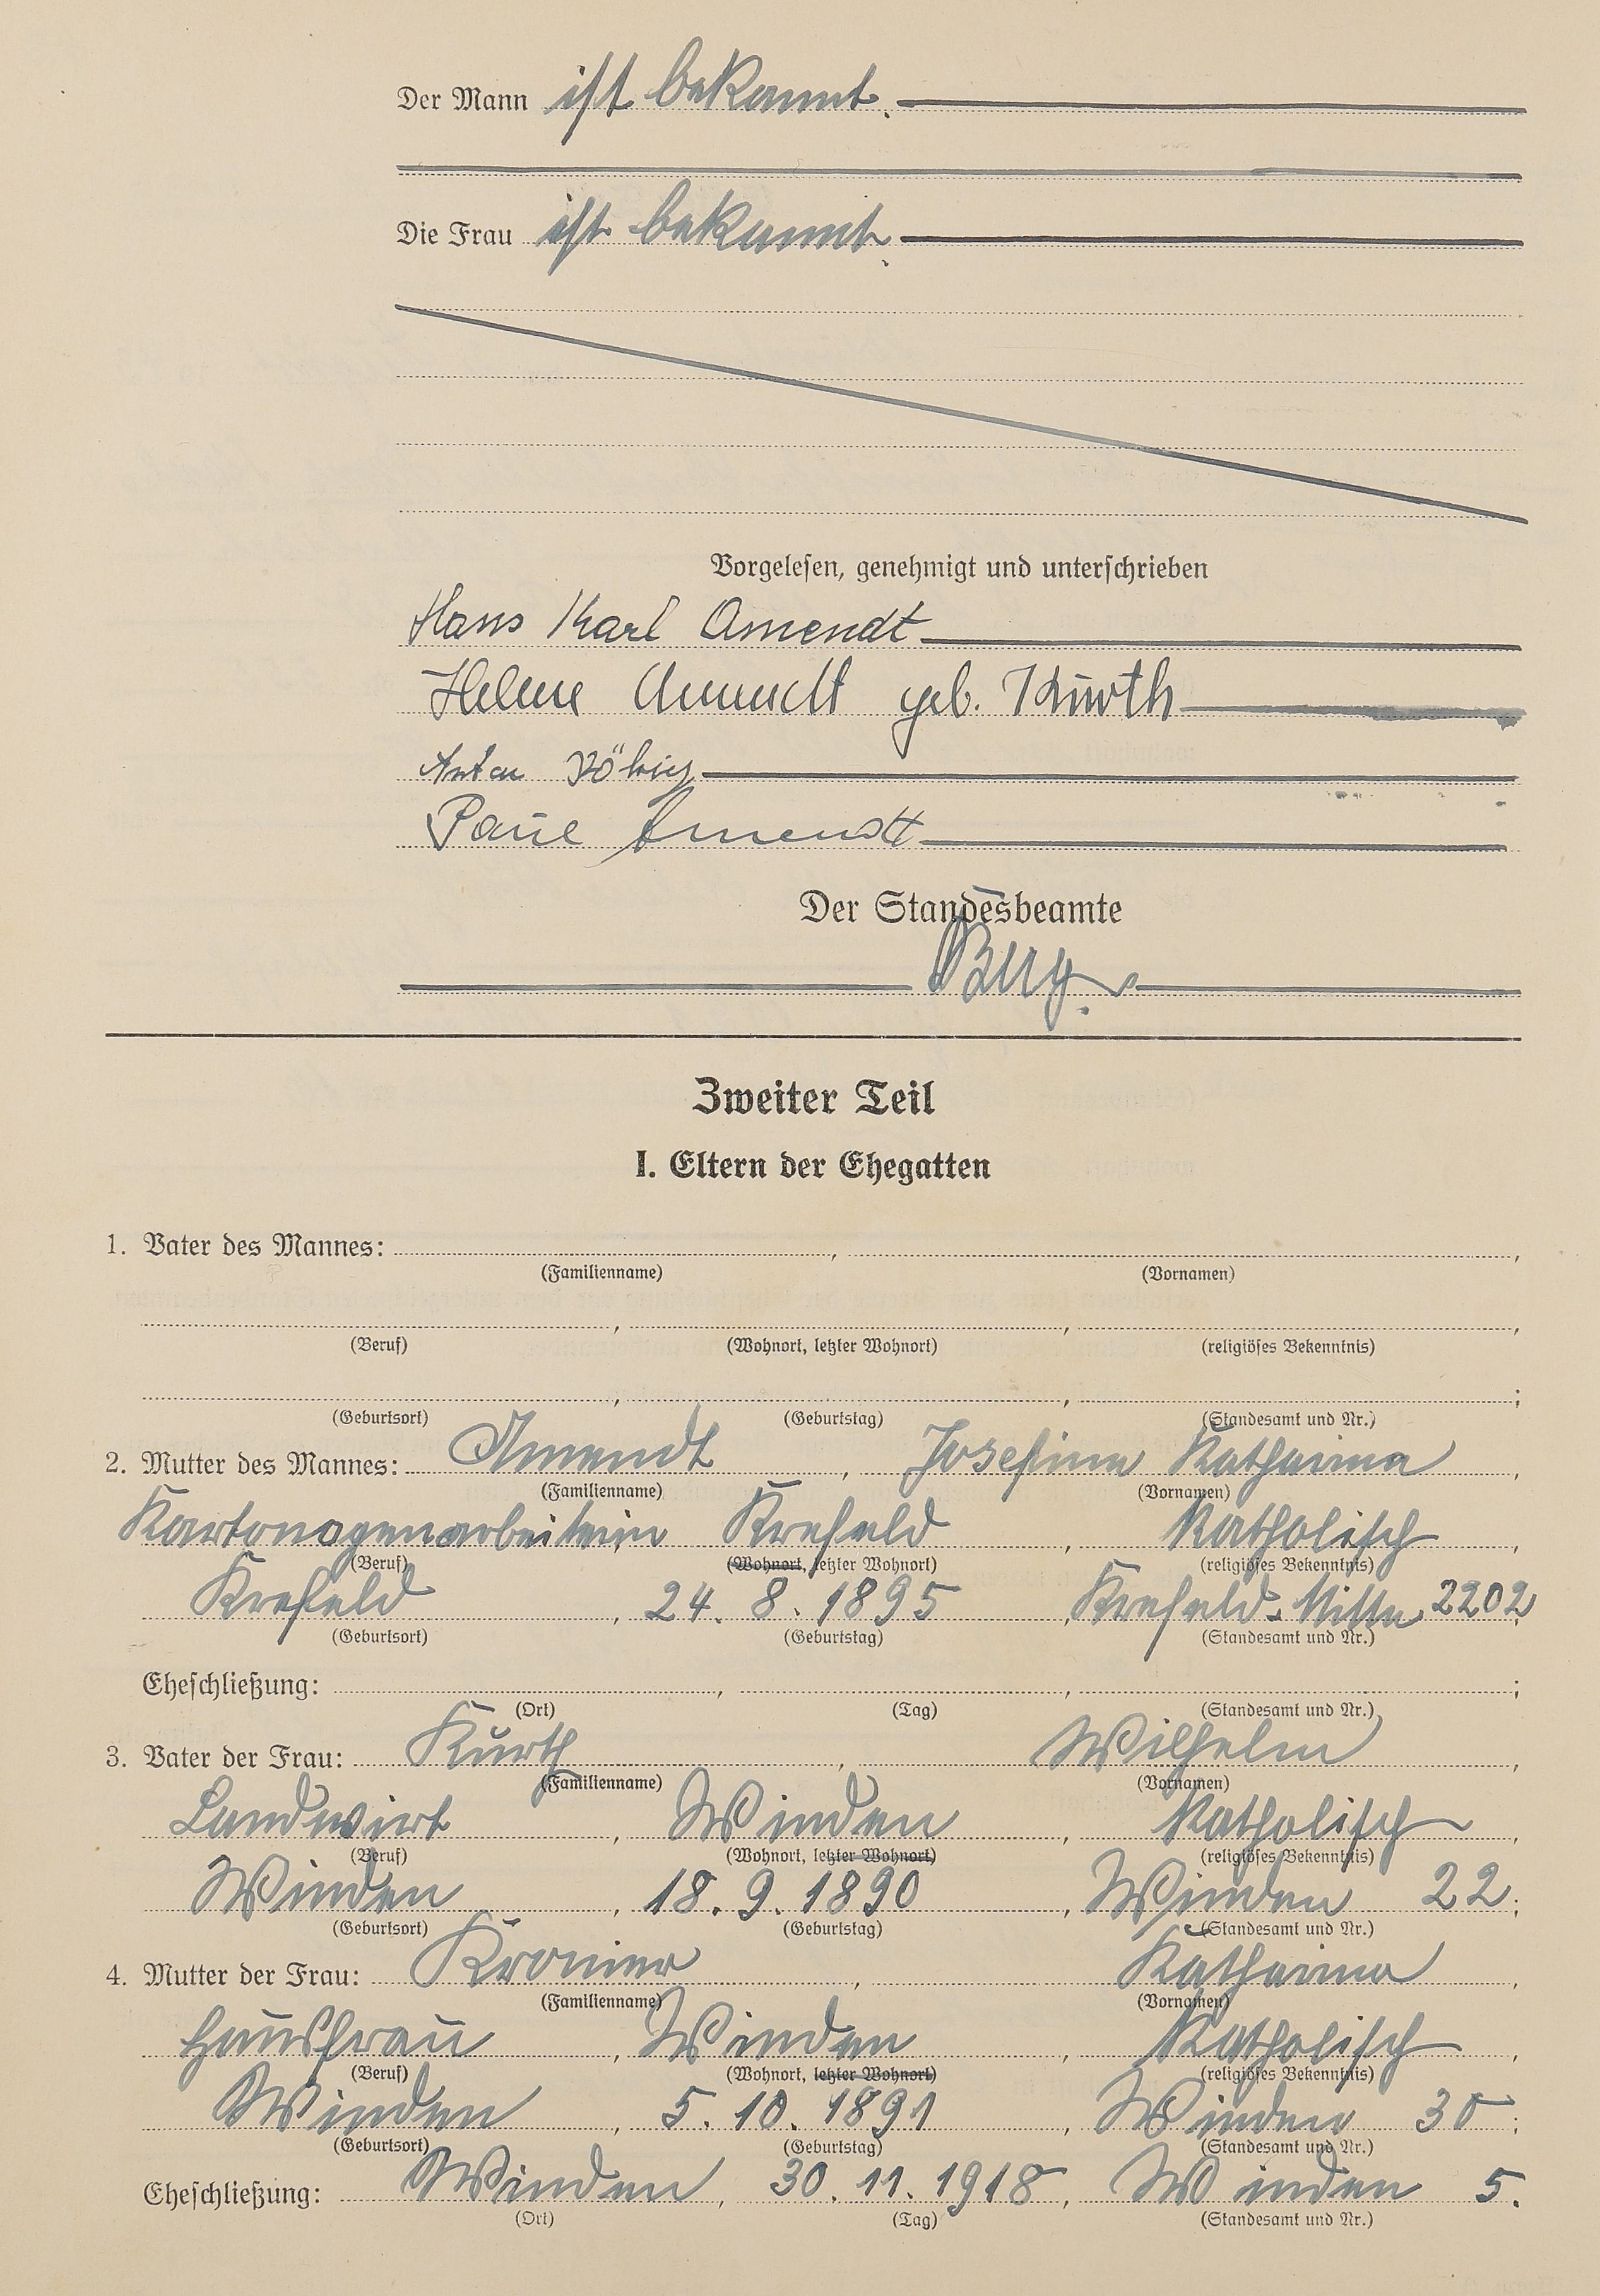 Der Mann ist bekannt.
Die Frau ist bekannt.
Vorgelesen, genehmigt und unterschrieben
Hans Karl Amendt
Helene Amendt geb. Kurth
Anton
Paul Amendt
Der Standesbeamte
Berg
Zweiter Teil
I. Eltern der Ehegatten
1. Vater des Mannes: , ,
(Familienname) (Vornamen)
, , ,
(Beruf) (Wohnort, letzter Wohnort) (religiöses Bekenntnis)
, , ;
(Geburtsort) (Geburtstag) (Standesamt und Nr.)
2. Mutter des Mannes: Amendt, Josefine Katharina,
(Familienname) (Vornamen)
Kartonagenarbeiterin, Krefeld, Katholisch,
(Beruf) (Wohnort, letzter Wohnort) (religiöses Bekenntnis)
Krefeld, 24. 8. 1895, Krefeld-Mitte 2202;
(Geburtsort) (Geburtstag) (Standesamt und Nr.)
Eheschließung: , , ;
(Ort) (Tag) (Standesamt und Nr.)
3. Vater der Frau: Kurth, Wilhelm,
(Familienname) (Vornamen)
Landwirt, Winden, Katholisch,
(Beruf) (Wohnort, letzter Wohnort) (religiöses Bekenntnis)
Winden, 18. 9. 1890, Winden 22;
(Geburtsort) (Geburtstag) (Standesamt und Nr.)
4. Mutter der Frau: , Katharina,
(Familienname) (Vornamen)
Hausfrau, Winden, Katholisch,
(Beruf) (Wohnort, letzter Wohnort) (religiöses Bekenntnis)
Winden, 5. 10. 1891, Winden 30;
(Geburtsort) (Geburtstag) (Standesamt und Nr.)
Eheschließung: Winden, 30. 11. 1918, Winden 5.
(Ort) (Tag) (Standesamt und Nr.)